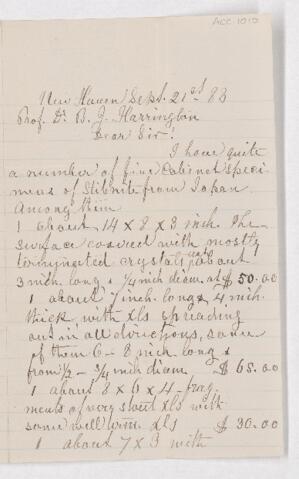 ACC. 1010
New Haven Sept. 21st 83
Prof. Dr. B. J. Harrington
Dear Sir!
I have quite
a number of fine Cabinet speci
mens of Stibnite from Japan
Among them
1 about 14 x 8 x 3 inch. The
surface covered with mostly
terminated crystals about
3 inch. long & 1/4 inch diam. at $50.00
1 about 7 inch. long & 4 inch.
thick with xls spreading
out in all directions, some
of them 6 - 8 inch long &
from 1/2 - 3/4 inch diam $65.00
1 about 8 x 6 x 4 - frag
ments of very stout xls with
some well term. xls $30.00
1 about 7 x 3 with